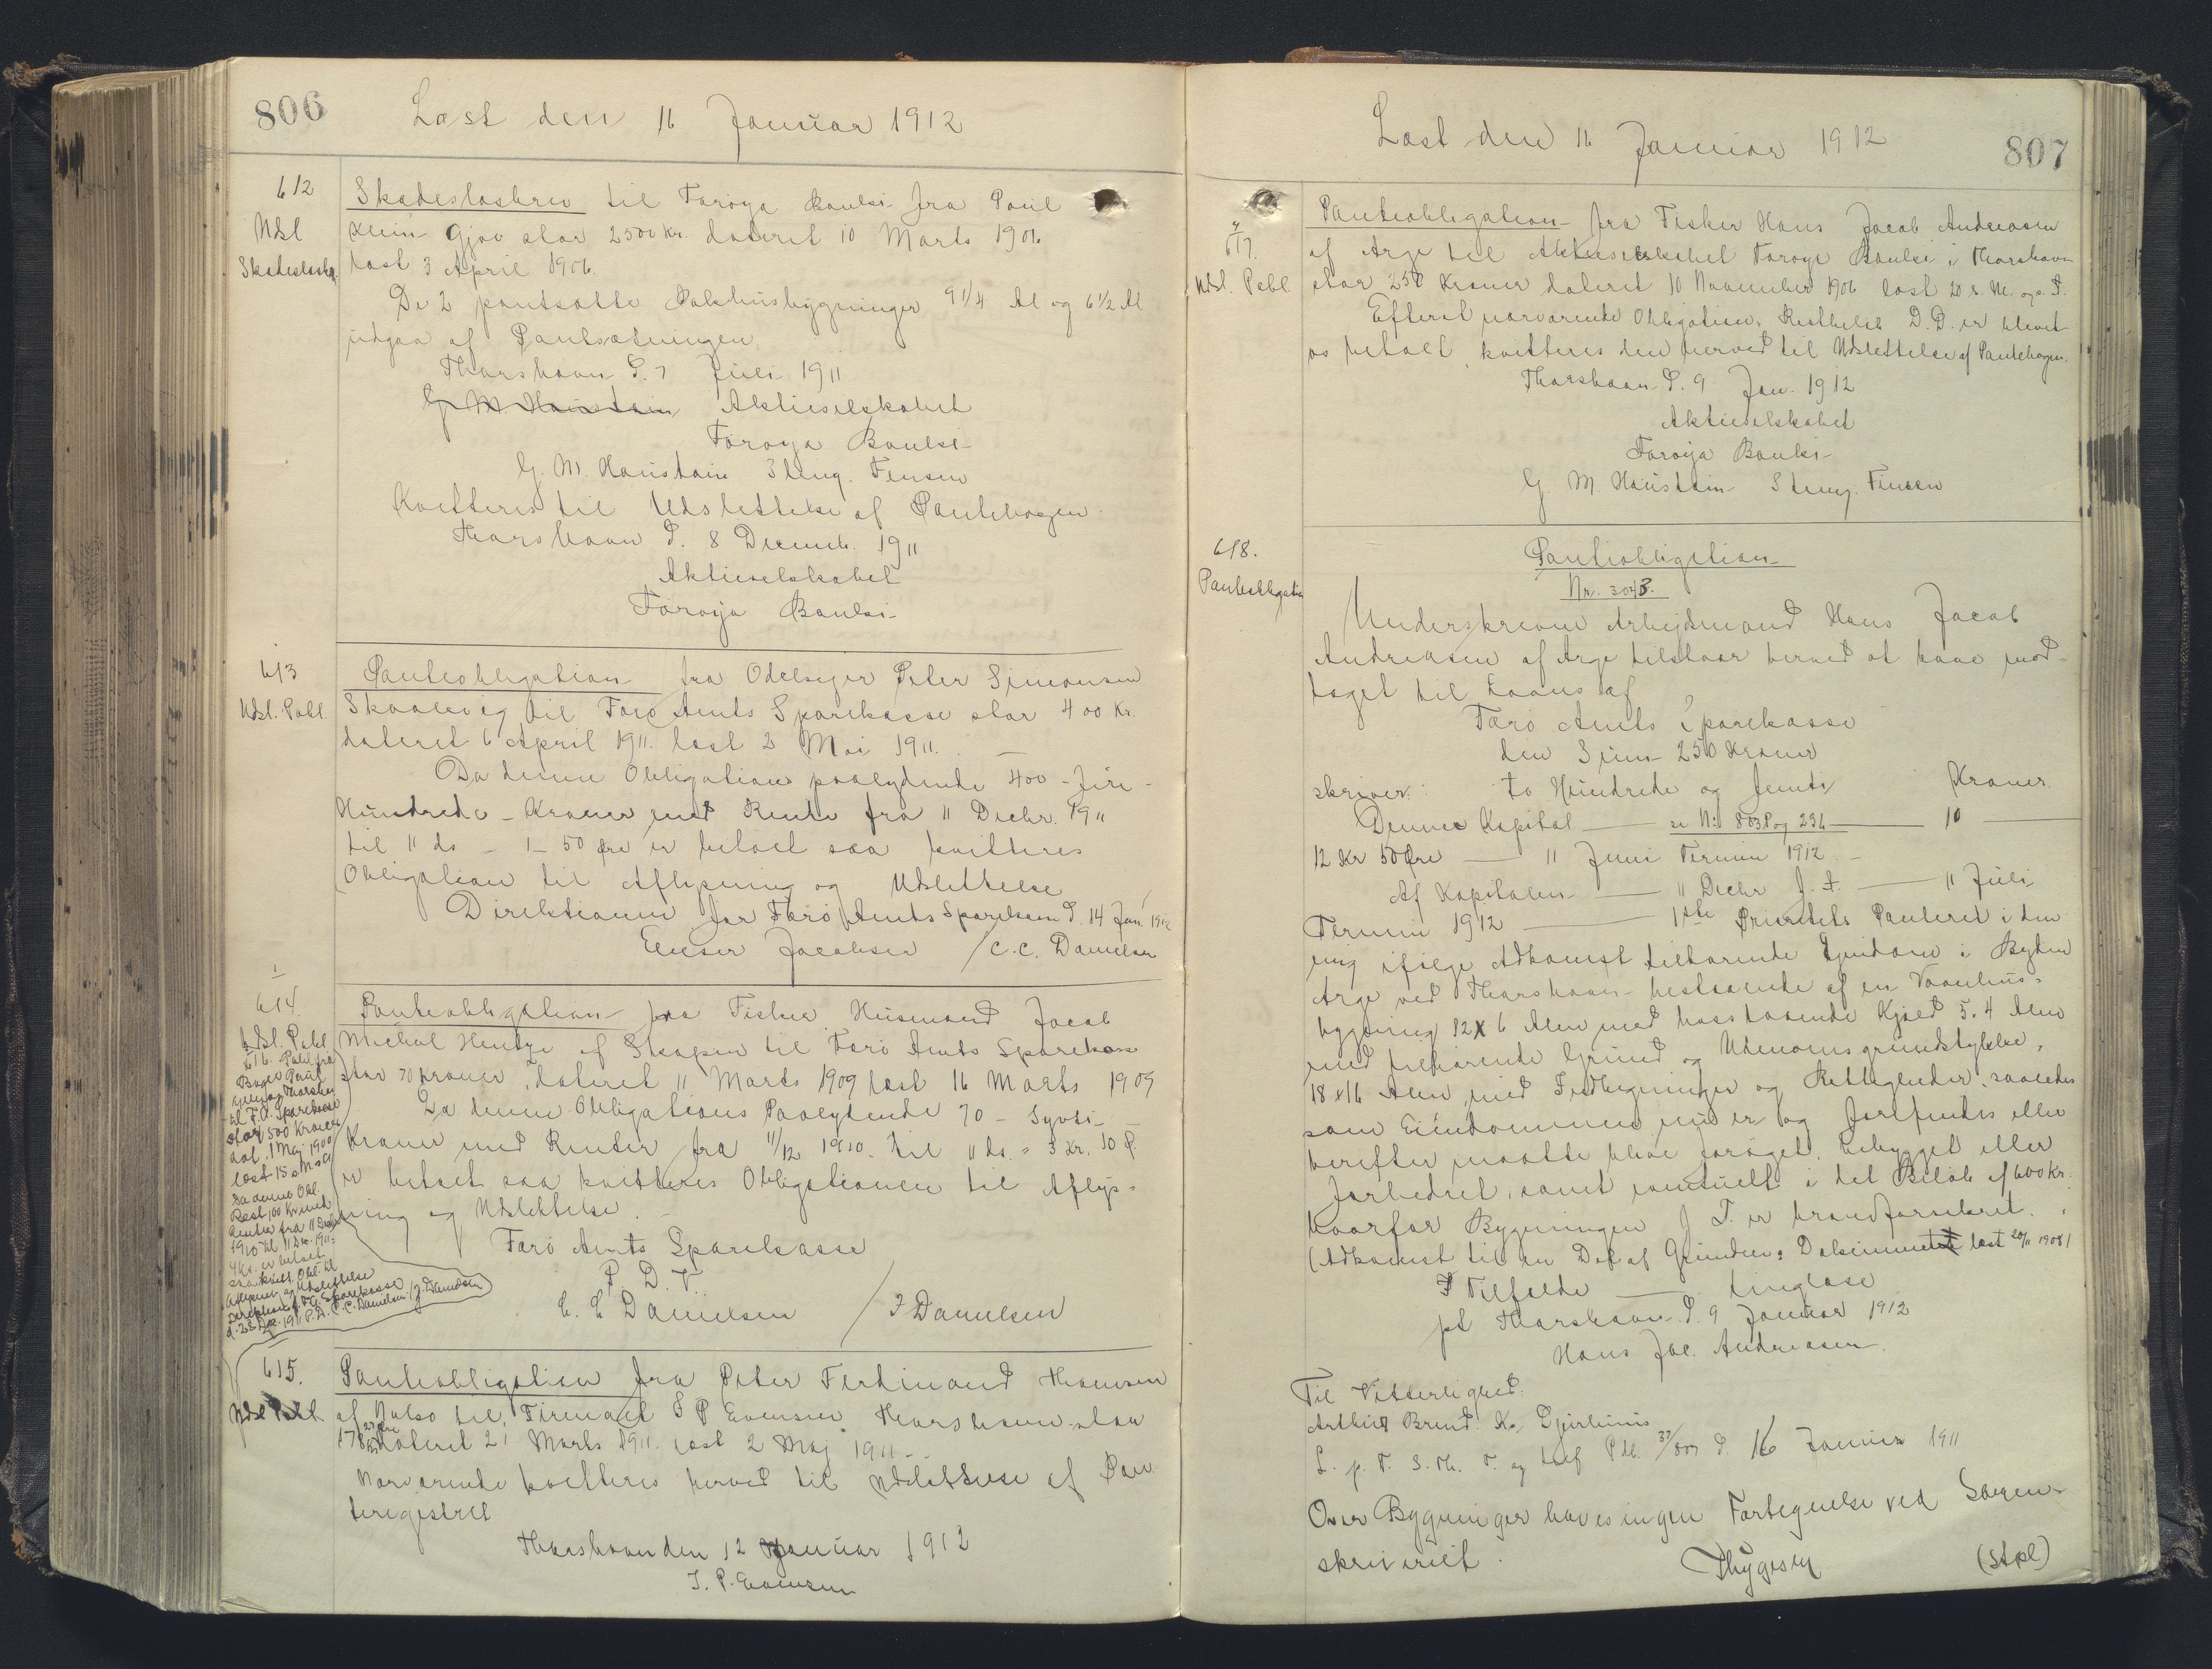 806
Læst den 16 Januar 1912
612
Udsl
Skadesløsbr.
Skadesløsbrev til Førøya Banki fra Poul
Klein Gjov stor 2500 Kr. dateret 10 Marts 1906
læst 3 April 1906.
De 2 pantsatte Pakhusbygninger 9 1/4 Al og 6 1/2 Al
udgaa af Pantsætningen.
Thorshavn D. 7 Juli 1911
G. M. Haustein Aktieselskabet
Føroya Banki
G. M. Haustein Steng. Finsen
Kvitteres til Udslettelse af Pantebogen
Thorshavn D. 8 Decemb. 1911
Aktieselskabet
Føroya Banki
613
Udsl. Pobl.
Panteobligation fra Odelsejer Peter Simonsen
Skaalevig til Færø Amts Sparekasse stor 400 Kr.
dateret 6 April 1911. læst 2 Mai 1911.
Da denne Obligation paalydende 400 - fire -
Hundrede - Kroner med Rente fra 11 Decbr. 1911
til 11 ds - 1 - 50 Øre er betalt saa kvitteres
Obligation til Aflysning og Udslettelse
Direktionen for Færø Amts Sparekasse D. 14 Jan. 1912
Elieser Jacobsen / C. C. Danielsen
614.
Udsl. Pobl
Panteobligation fra Fisker Husmand Jacob
Michal Hentze af Skopen til Færø Amts Sparekasse
stor 70 Kroner, dateret 11 Marts 1909 læst 16 Marts 1909
Da denne Obligations Paalydende 70 - Syvti -
Kroner med Renter fra 11/12 1910 til 11 ds. = 3 Kr. 10 Ø.
er betalt saa kvitteres Obligationen til Aflys=
ning og Udslettelse.
Færø Amts Sparekasse
P. D. V.
C. C Danielsen / J Danielsen
616. Pobl fra
Bager Poul
Thorshavn
til F. A. Sparekasse
stor 500 Kroner
dat. 1 Maj 1900
læst 15 s. M & A
Da denne Obl.
Rest 100 Kr med
Renter fra 11 Decbr
1910 til 11 Dec. 1911 =
4 Kr. er betalt
saa kvitt. Obl. til
Aflysn. og Udslettelse
Direktion f. F. A. Sparekasse
d. 23 Dec. 1911 P. D. V. C. C. Danielsen / J. Danielsen
615.
Udsl Pobl
Panteobligation fra Peter Ferdinand Thomsen
af Nolsø til Firmaet J P Evensen Thorshavn stor
178 Kr 27 Øre dateret 21 Marts 1911. læst 2 Maj 1911 -
Nærværende kvitteres herved til Udslettelse af Pan
teregistret
Thorshavn den 12 Januar 1912
J. P. Evensen
Læst den 16 Januar 1912
807
617.
Udsl. Pobl
Panteobligation fra Fisker Hans Jacob Andreasen
af Arge til Aktieselskabet Føroya Banki i Thorshavn
stor 250 Kroner dateret 10 November 1906 læst 20 s. M. og A.
Efterat nærværende Obligations Restbeløb D. D. er blevet
os betalt kvitteres den herved til Udslettelse af Pantebogen.
Thorshavn D. 9 Jan. 1912
Aktieselskabet
Føroya Banki
G. M. Haustein Steng. Finsen
618.
Panteobligation
Panteobligation
Nr. 3043.
Underskrevne Arbejdsmand Hans Jacob
Andreasen af Arge tilstaar herved at have mod-
taget til Laans af
Færø Amts Sparekasse
den Sum 250 Kroner
skriver: to Hundrede og femti Kroner.
Denne Kapital — se No 803 P og 236 — 10 —
12 Kr 50 Øre — 11 Juni Termin 1912 -
Af Kapitalen — 11 Decbr f. A. — 11 Juli
Termin 1912 — 1ste Prioritets Panteret i den
mig ifølge Adkomst tilhørende Ejendom i Bygden
Arge ved Thorshavn bestaaende af en Vaanhus=
bygning 12 x 6 Alen med hosstaaende Kjøed 5 x 4 Alen
med tilhørende Grund og Udenomsgrundstykke,
18 x 16 Alen, med Indhegninger og Rettigheder, saaledes
som Eiendommen nu er og forefindes eller
herefter maatte blive forøget, bebygget eller
forbedret, samt eventuelt i det Beløb af 600 Kr.
hvorfor Bygningen f. T. er brandforsikret.
(Adkomst til en Del af Grunden: læst 20/11 1908)
I Tilfælde — tinglæse
pt Thorshavn D. 9 Januar 1912
Hans Jac. Andreasen.
Til Vitterlighed:
Arthur Brend. K. Djurhuus
L. p. T. S. Th. T. og indf. Pbl. 37/807 D. 16 Januar 1911
Over Bygninger haves ingen Fortegnelse ved Soren-
skriveriet.
Thygesen (Stpl)